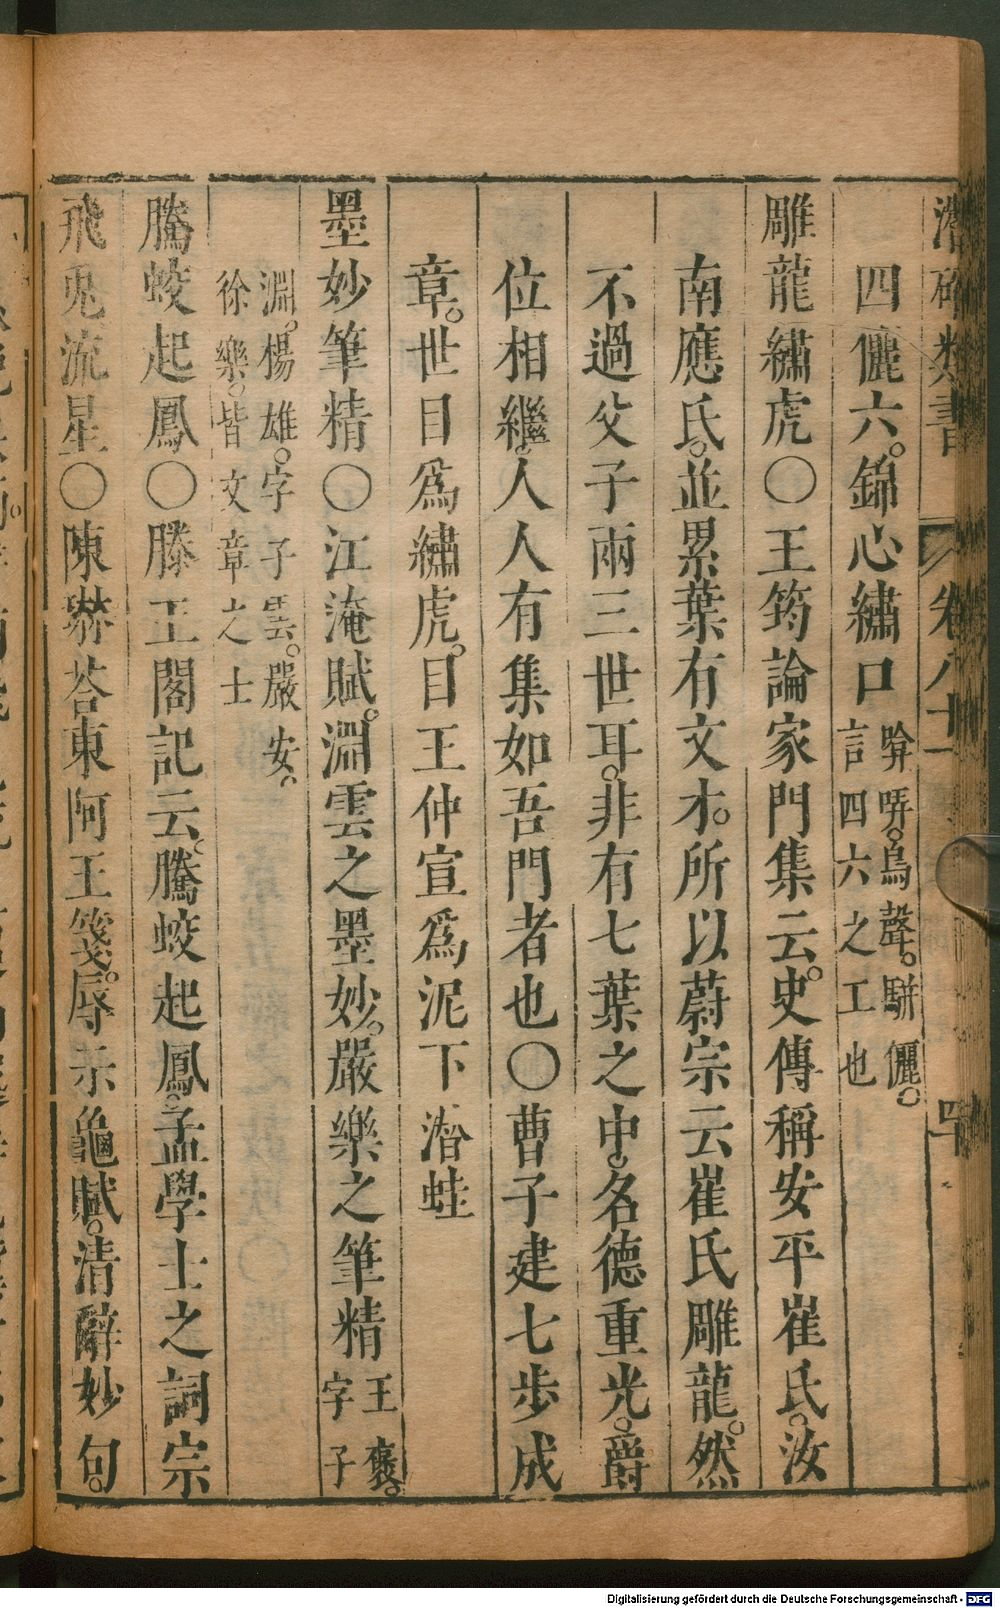 潛確類書 卷八十一 四十
四儷六。錦心繡口 哢哢。鳥聲。駢儷。言四六之工也
雕龍繡虎○王筠論家門集云。史傳稱安平崔氏。汝
南應氏。並累葉有文才。所以蔚宗云崔氏雕龍。然
不過父子兩三世耳。非有七葉之中。名德重光。爵
位相繼。人人有集如吾門者也○曹子建七步成
章。世目為繡虎。目王仲宣為泥下潛蛙
墨妙筆精○江淹賦。淵雲之墨妙。嚴樂之筆精 王褒。字子
淵。楊雄。字子雲。嚴安。徐樂。皆文章之士
騰蛟起鳳○滕王閣記云。騰蛟起鳳。孟學士之詞宗
飛兎流星○陳琳荅東阿王箋。辱示龜賦。清辭妙句。
Digitalisierung gefördert durch die Deutsche Forschungsgemeinschaft - DFG